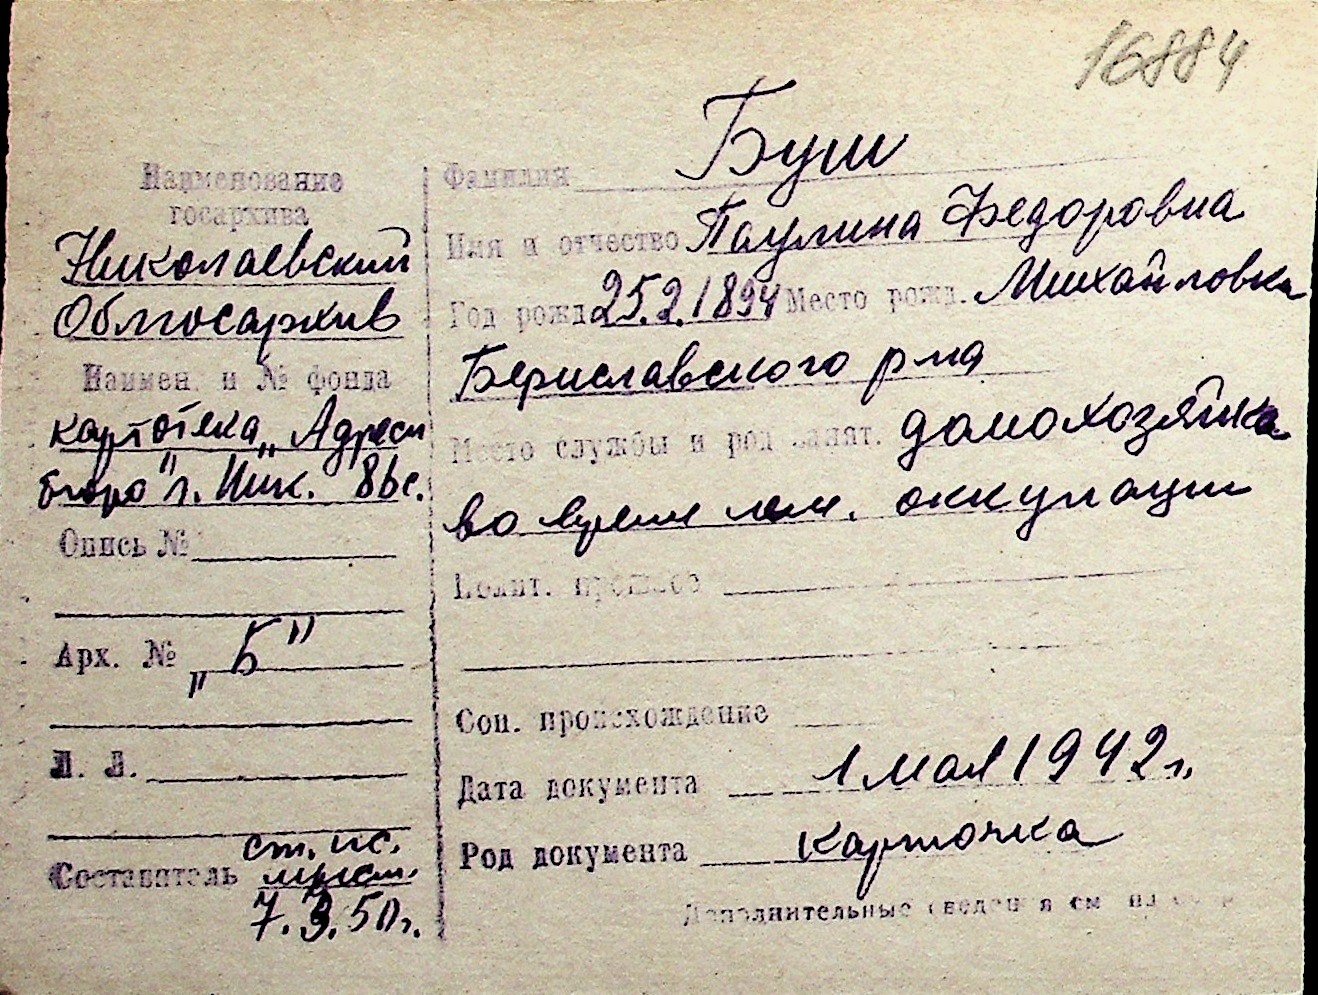 16884
Наименование
госархива
Николаевский
Облгосархив
Наимен. и № фонда
картотека „Адресн
бюро" г. Ник.
Опись №
Арх. № „Б"
Л. Л.
Составитель ст. ис.
7.3.50г.
Фамилия Буш
Имя и отчество Паулина Федоровна
Год рожд 25.2.1894 Место рожд. Михайловка
Бериславского р-на
Место службы и род занят. домохозяйка
во время нем. оккупации
Полит. прошлое
Соц. происхождение
Дата документа 1 мая 1942 г.
Род документа карточка
Дополнительные сведения см на